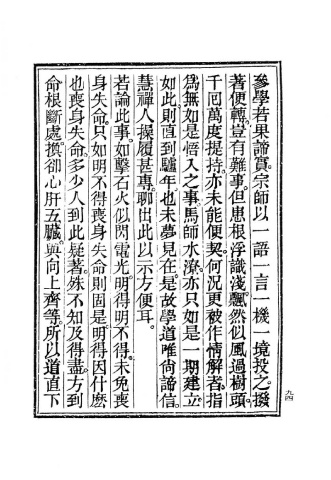 參學若果諦實。宗師以一語一言一機一境投之。撥
著便轉。豈有難事。但患根浮識淺。飄然似風過樹頭。
千回萬度提持。亦未能便契。何況更被作情解者。指
爲無如是悟入之事。馬師水潦。亦只如是一期建立。
如此則直到驢年。也未夢見在。是故學道唯尙諦信。
慧禪人操履甚專。聊出此以示方便耳。
若論此事。如擊石火似閃電光。明得明不得。未免喪
身失命。只如明不得喪身失命則固是。明得因什麽
也喪身失命。多少人到此疑著。殊不知及得盡。方到
命根斷處。換卻心肝五臟。與向上齊等。所以道直下
九四